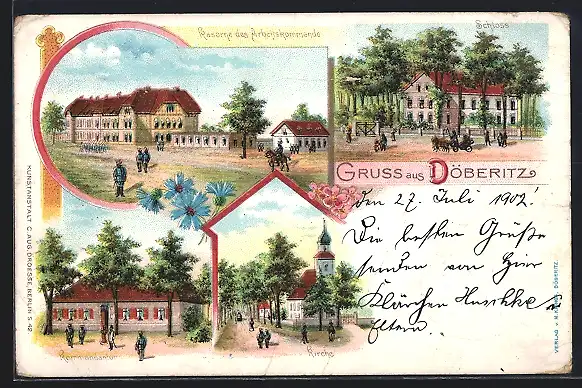 Kaserne des Arbeitskommando
Schloss
GRUSS aus DÖBERITZ
den 27. Juli 1902!
Die besten Grüße
senden von hier
Klärchen Huschke u.
Eltern.
Kommandantur
Kirche
KUNSTANSTALT C. AUG. DROESSE, BERLIN S. 42
VERLAG v. DÖBERITZ.